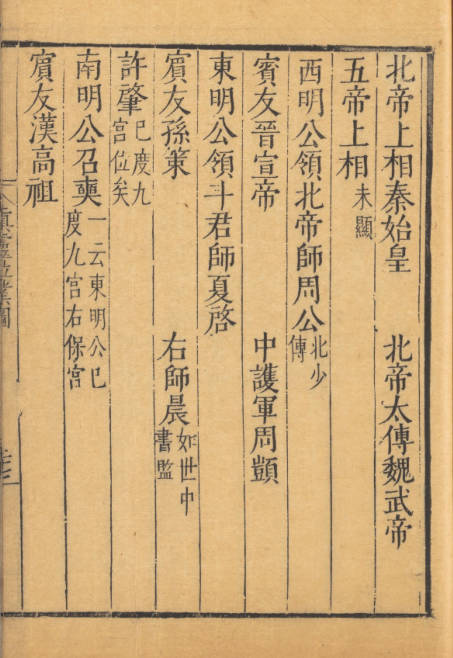 北帝上相秦始皇　北帝太傅魏武帝
五帝上相未顯
西明公領北帝師周公北少傅
賓友晉宣帝　中護軍周顗
東明公領斗君師夏啓
賓友孫策　右師晨如世中書監
許肇已度九宮位矣
南明公召奭一云東明公已度九宮右保宮
賓友漢高祖